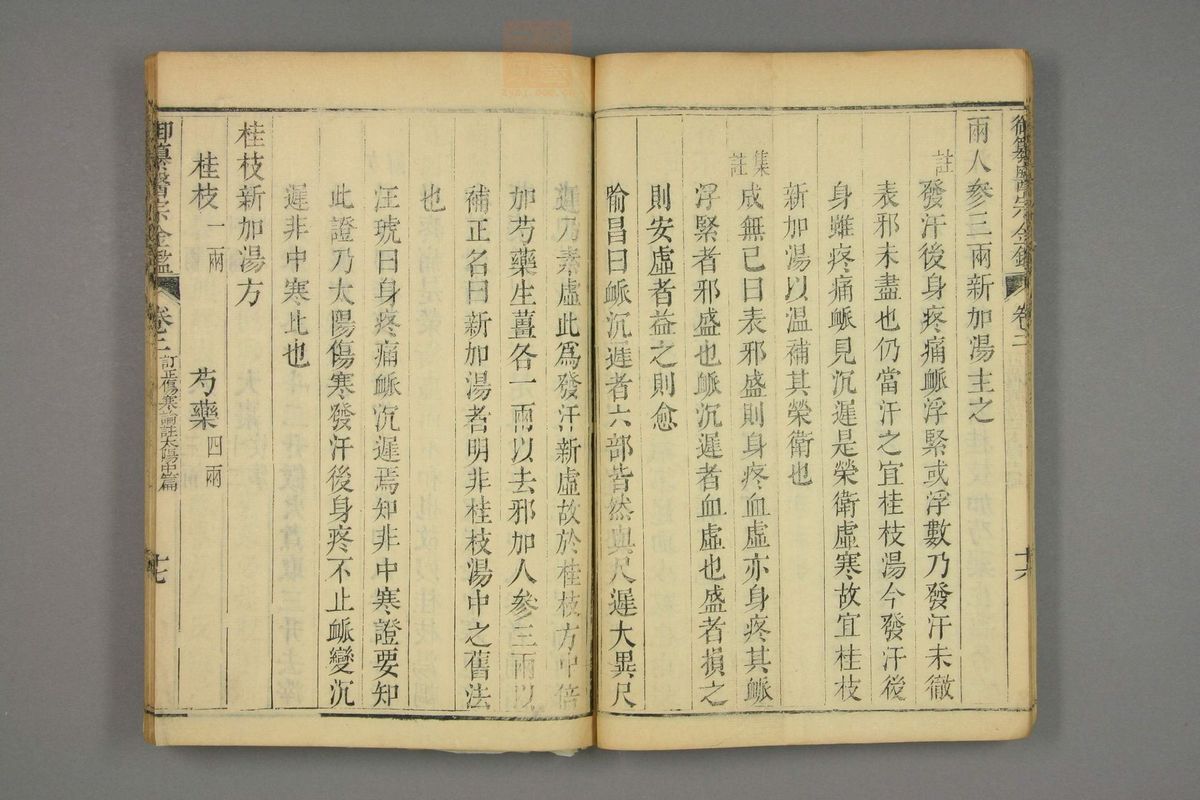 御纂醫宗金鑑 卷三 十六
兩人參三兩新加湯主之
註 發汗後身疼痛脈浮緊或浮數乃發汗未徹
表邪未盡也仍當汗之宜桂枝湯今發汗後
身雖疼痛脈見沉遲是榮衛虛寒故宜桂枝
新加湯以温補其榮衛也
集註 成無己曰表邪盛則身疼血虛亦身疼其脈
浮緊者邪盛也脈沉遲者血虛也盛者損之
則安虛者益之則愈
喻昌曰脈沉遲者六部皆然與尺遲大異尺
遲乃素虛此為發汗新虛故於桂枝方中倍
加芍藥生薑各一兩以去邪加人參三兩以
補正名曰新加湯者明非桂枝湯中之舊法
也
汪琥曰身疼痛脈沉遲焉知非中寒證要知
此證乃太陽傷寒發汗後身疼不止脈變沉
遲非中寒比也
桂枝新加湯方
桂枝一兩 芍藥四兩
御纂醫宗金鑑 卷三 訂正傷寒論註太陽中篇 十七